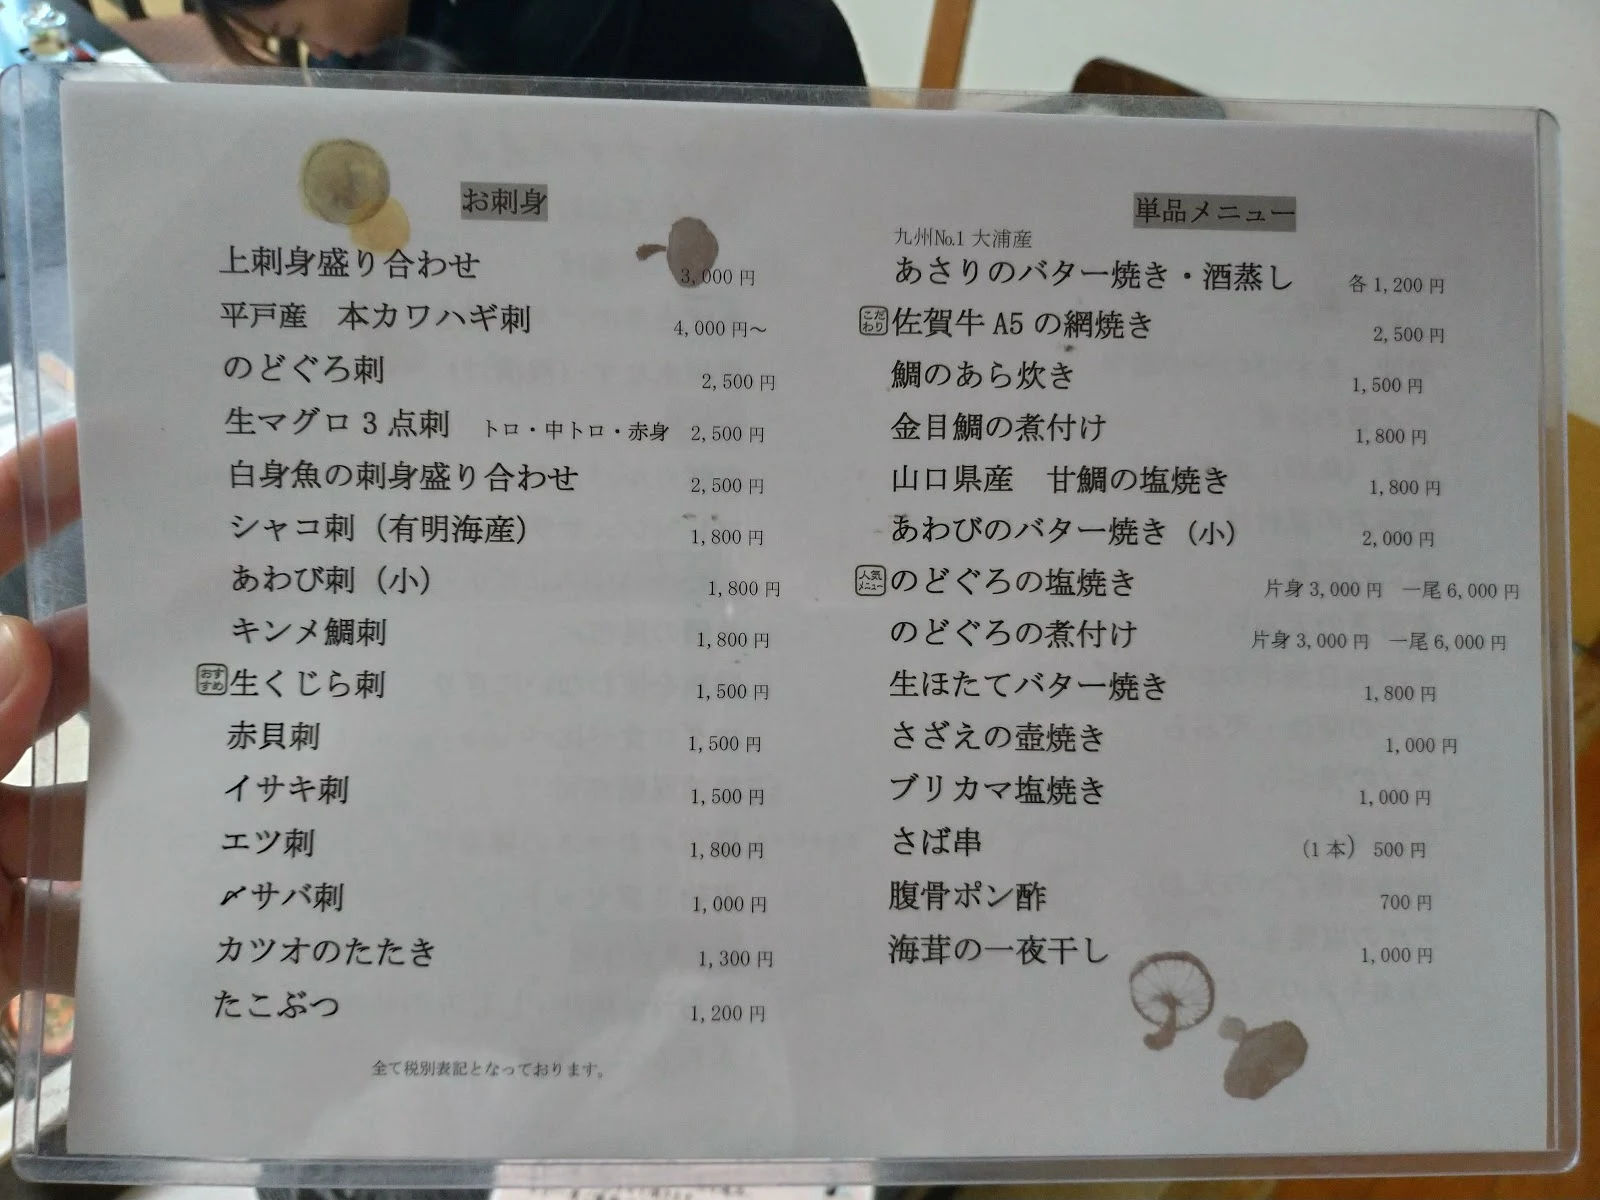 お刺身
上刺身盛り合わせ 3,000円
平戸産 本カワハギ刺 4,000円～
のどぐろ刺 2,500円
生マグロ3点刺 トロ・中トロ・赤身 2,500円
白身魚の刺身盛り合わせ 2,500円
シャコ刺（有明海産） 1,800円
あわび刺（小） 1,800円
キンメ鯛刺 1,800円
おすすめ 生くじら刺 1,500円
赤貝刺 1,500円
イサキ刺 1,500円
エツ刺 1,800円
〆サバ刺 1,000円
カツオのたたき 1,300円
たこぶつ 1,200円
全て税別表記となっております。
単品メニュー
九州№1 大浦産
あさりのバター焼き・酒蒸し 各1,200円
こだわり 佐賀牛A5の網焼き 2,500円
鯛のあら炊き 1,500円
金目鯛の煮付け 1,800円
山口県産 甘鯛の塩焼き 1,800円
あわびのバター焼き（小） 2,000円
人気メニュー のどぐろの塩焼き 片身3,000円 一尾6,000円
のどぐろの煮付け 片身3,000円 一尾6,000円
生ほたてバター焼き 1,800円
さざえの壺焼き 1,000円
ブリカマ塩焼き 1,000円
さば串 （1本） 500円
腹骨ポン酢 700円
海茸の一夜干し 1,000円